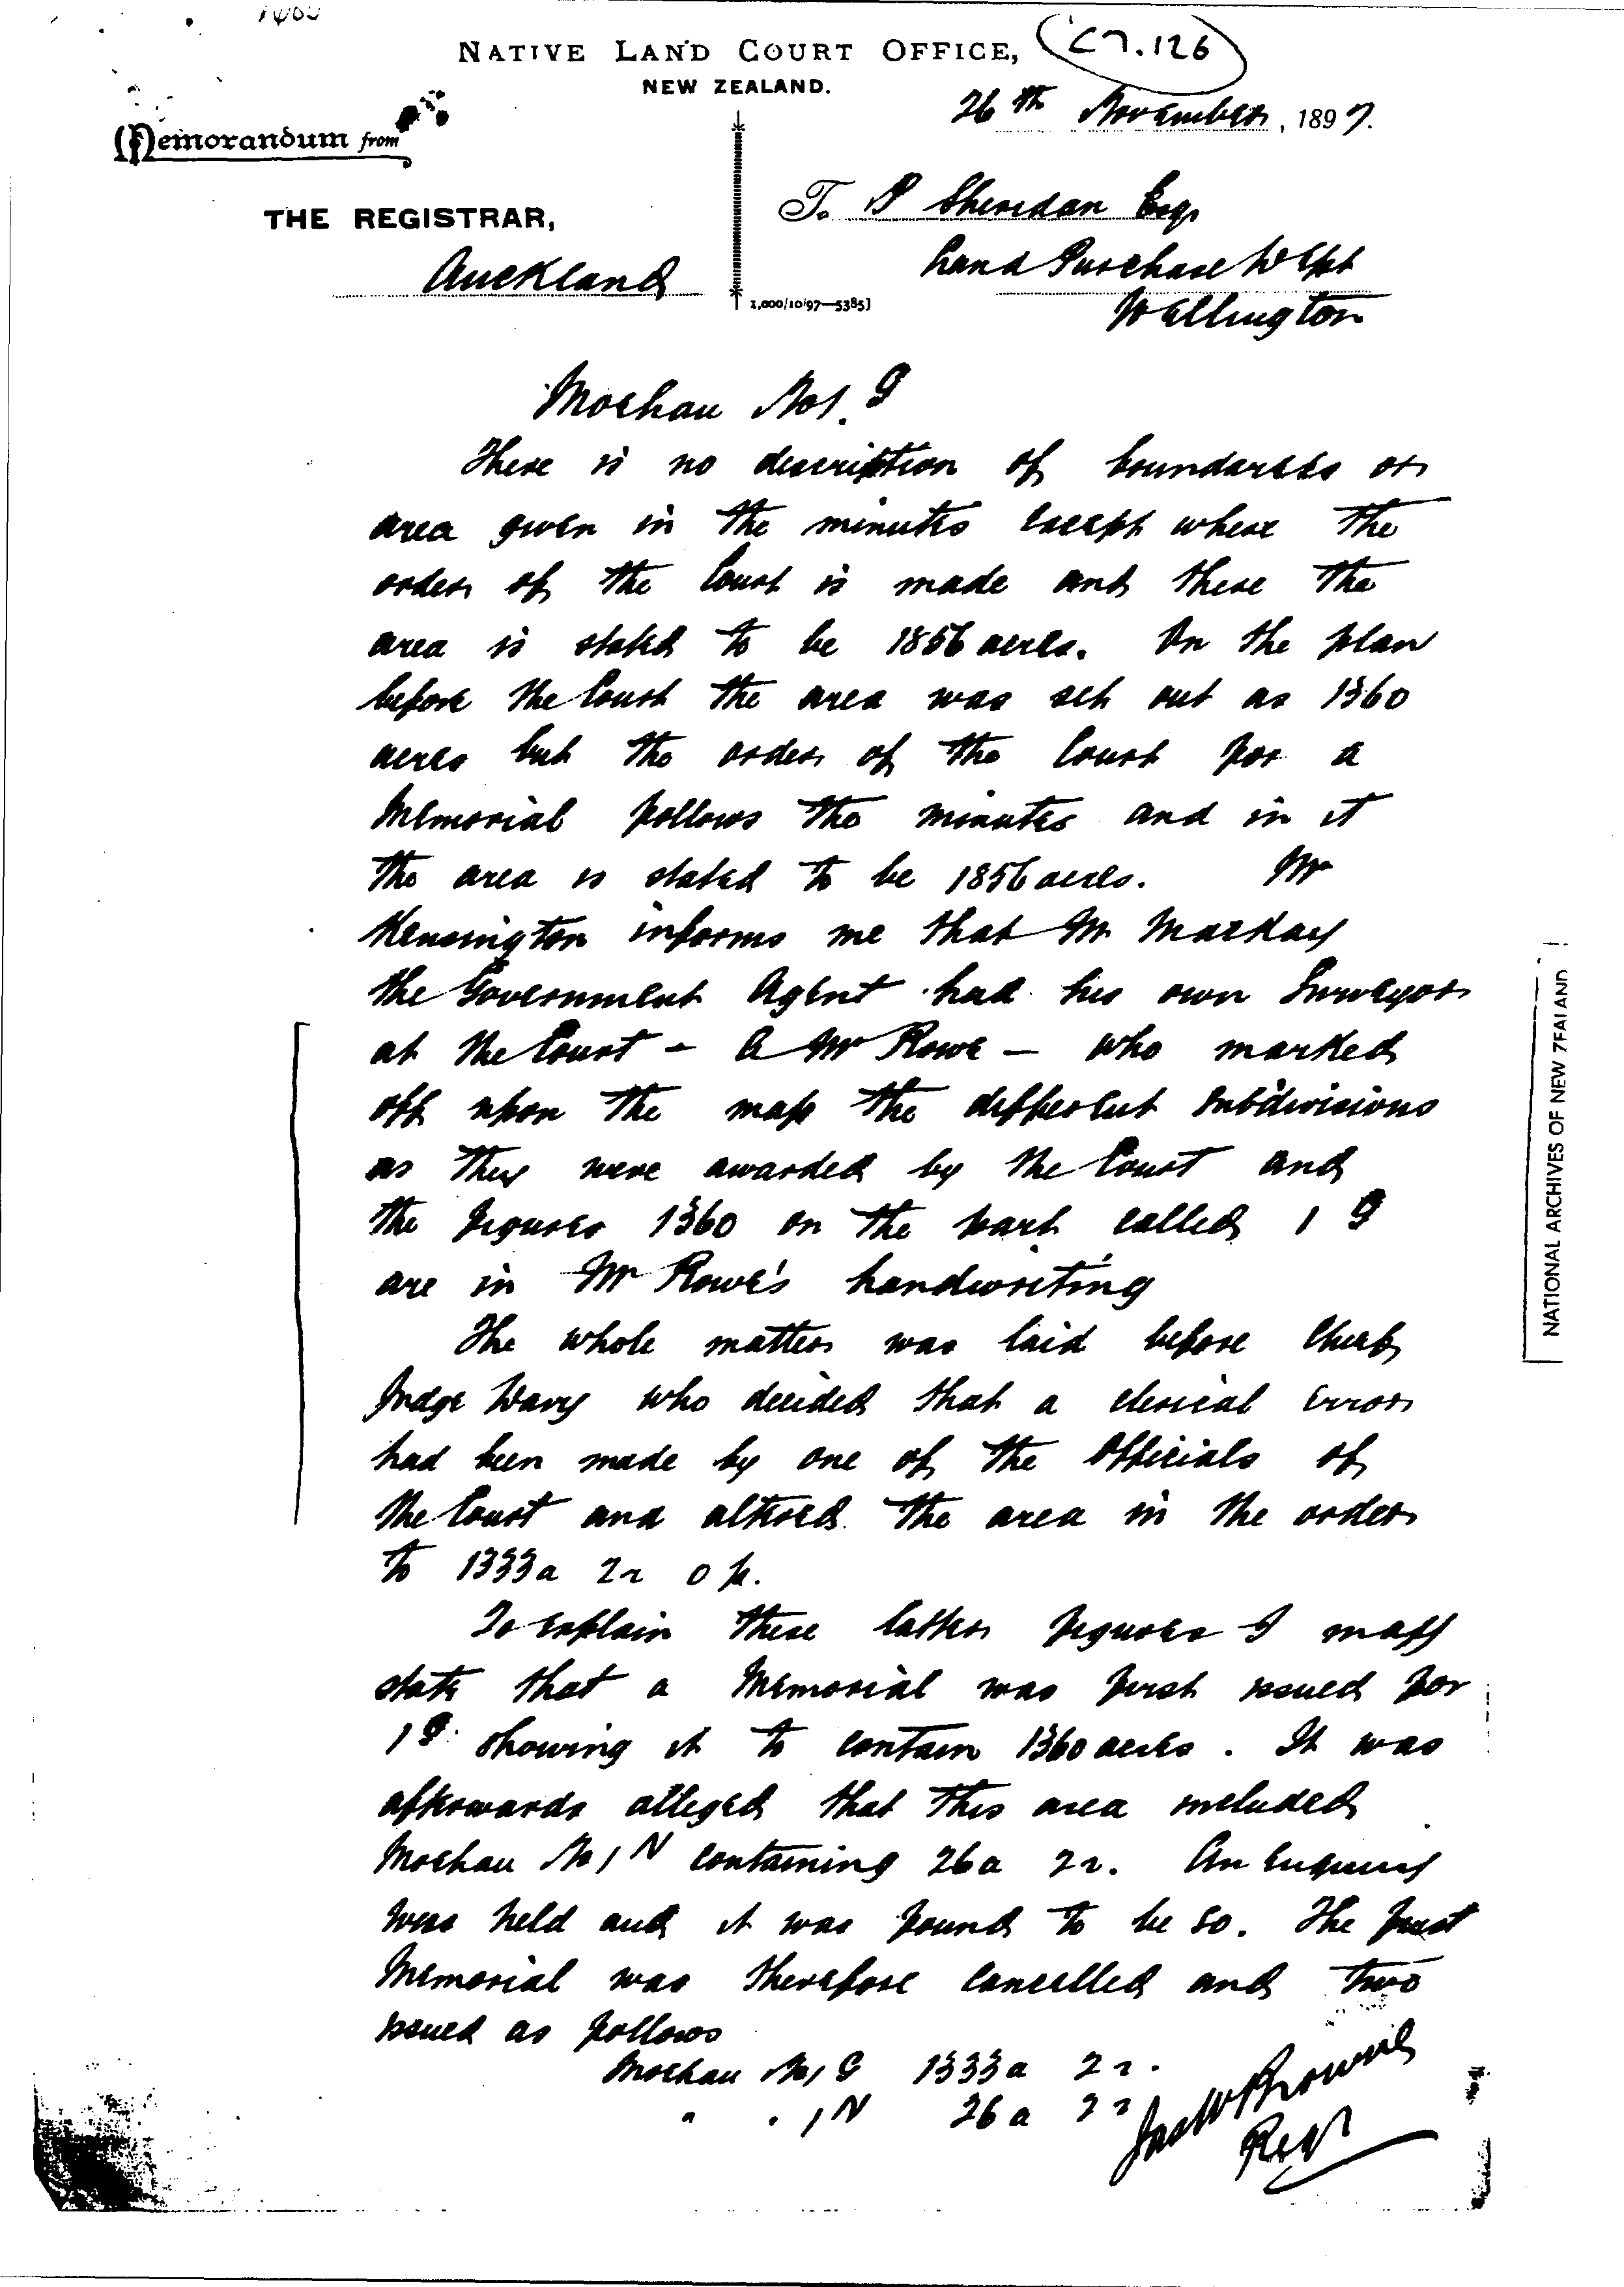 NATIVE LAND COURT OFFICE,
C7.126
NEW ZEALAND.
26th November, 1897.
Memorandum from
THE REGISTRAR,
Auckland
To P Sheridan Esqr
Land Purchase Dept
Wellington
1,000/10/97—5385]
Moehau No 1. G
There is no description of boundaries or
area given in the minutes except where the
order of the Court is made and there the
area is stated to be 1856 acres. On the plan
before the Court the area was set out as 1360
acres but the order of the Court for a
Memorial follows the minutes and in it
the area is stated to be 1856 acres. Mr
Kensington informs me that Mr Mackay
the Government Agent had his own Surveyor
at the Court - a Mr Rowe - who marked
off upon the map the different subdivisions
as they were awarded by the Court and
the figures 1360 on the part called 1 G
are in Mr Rowe's handwriting
The whole matter was laid before Chief
Judge Davy who decided that a clerical error
had been made by one of the Officials of
the Court and altered the area in the order
to 1333a 2r 0p.
To explain these latter figures I may
state that a Memorial was first issued for
1 G showing it to contain 1360 acres. It was
afterwards alleged that this area included
Moehau No 1 N containing 26a 2r. An Enquiry
was held and it was found to be so. The first
Memorial was therefore cancelled and two
issued as follows
Moehau No 1 G 1333a 2r.
" . 1 N 26a 2r
Jas W Browne
Regr
NATIONAL ARCHIVES OF NEW ZEALAND